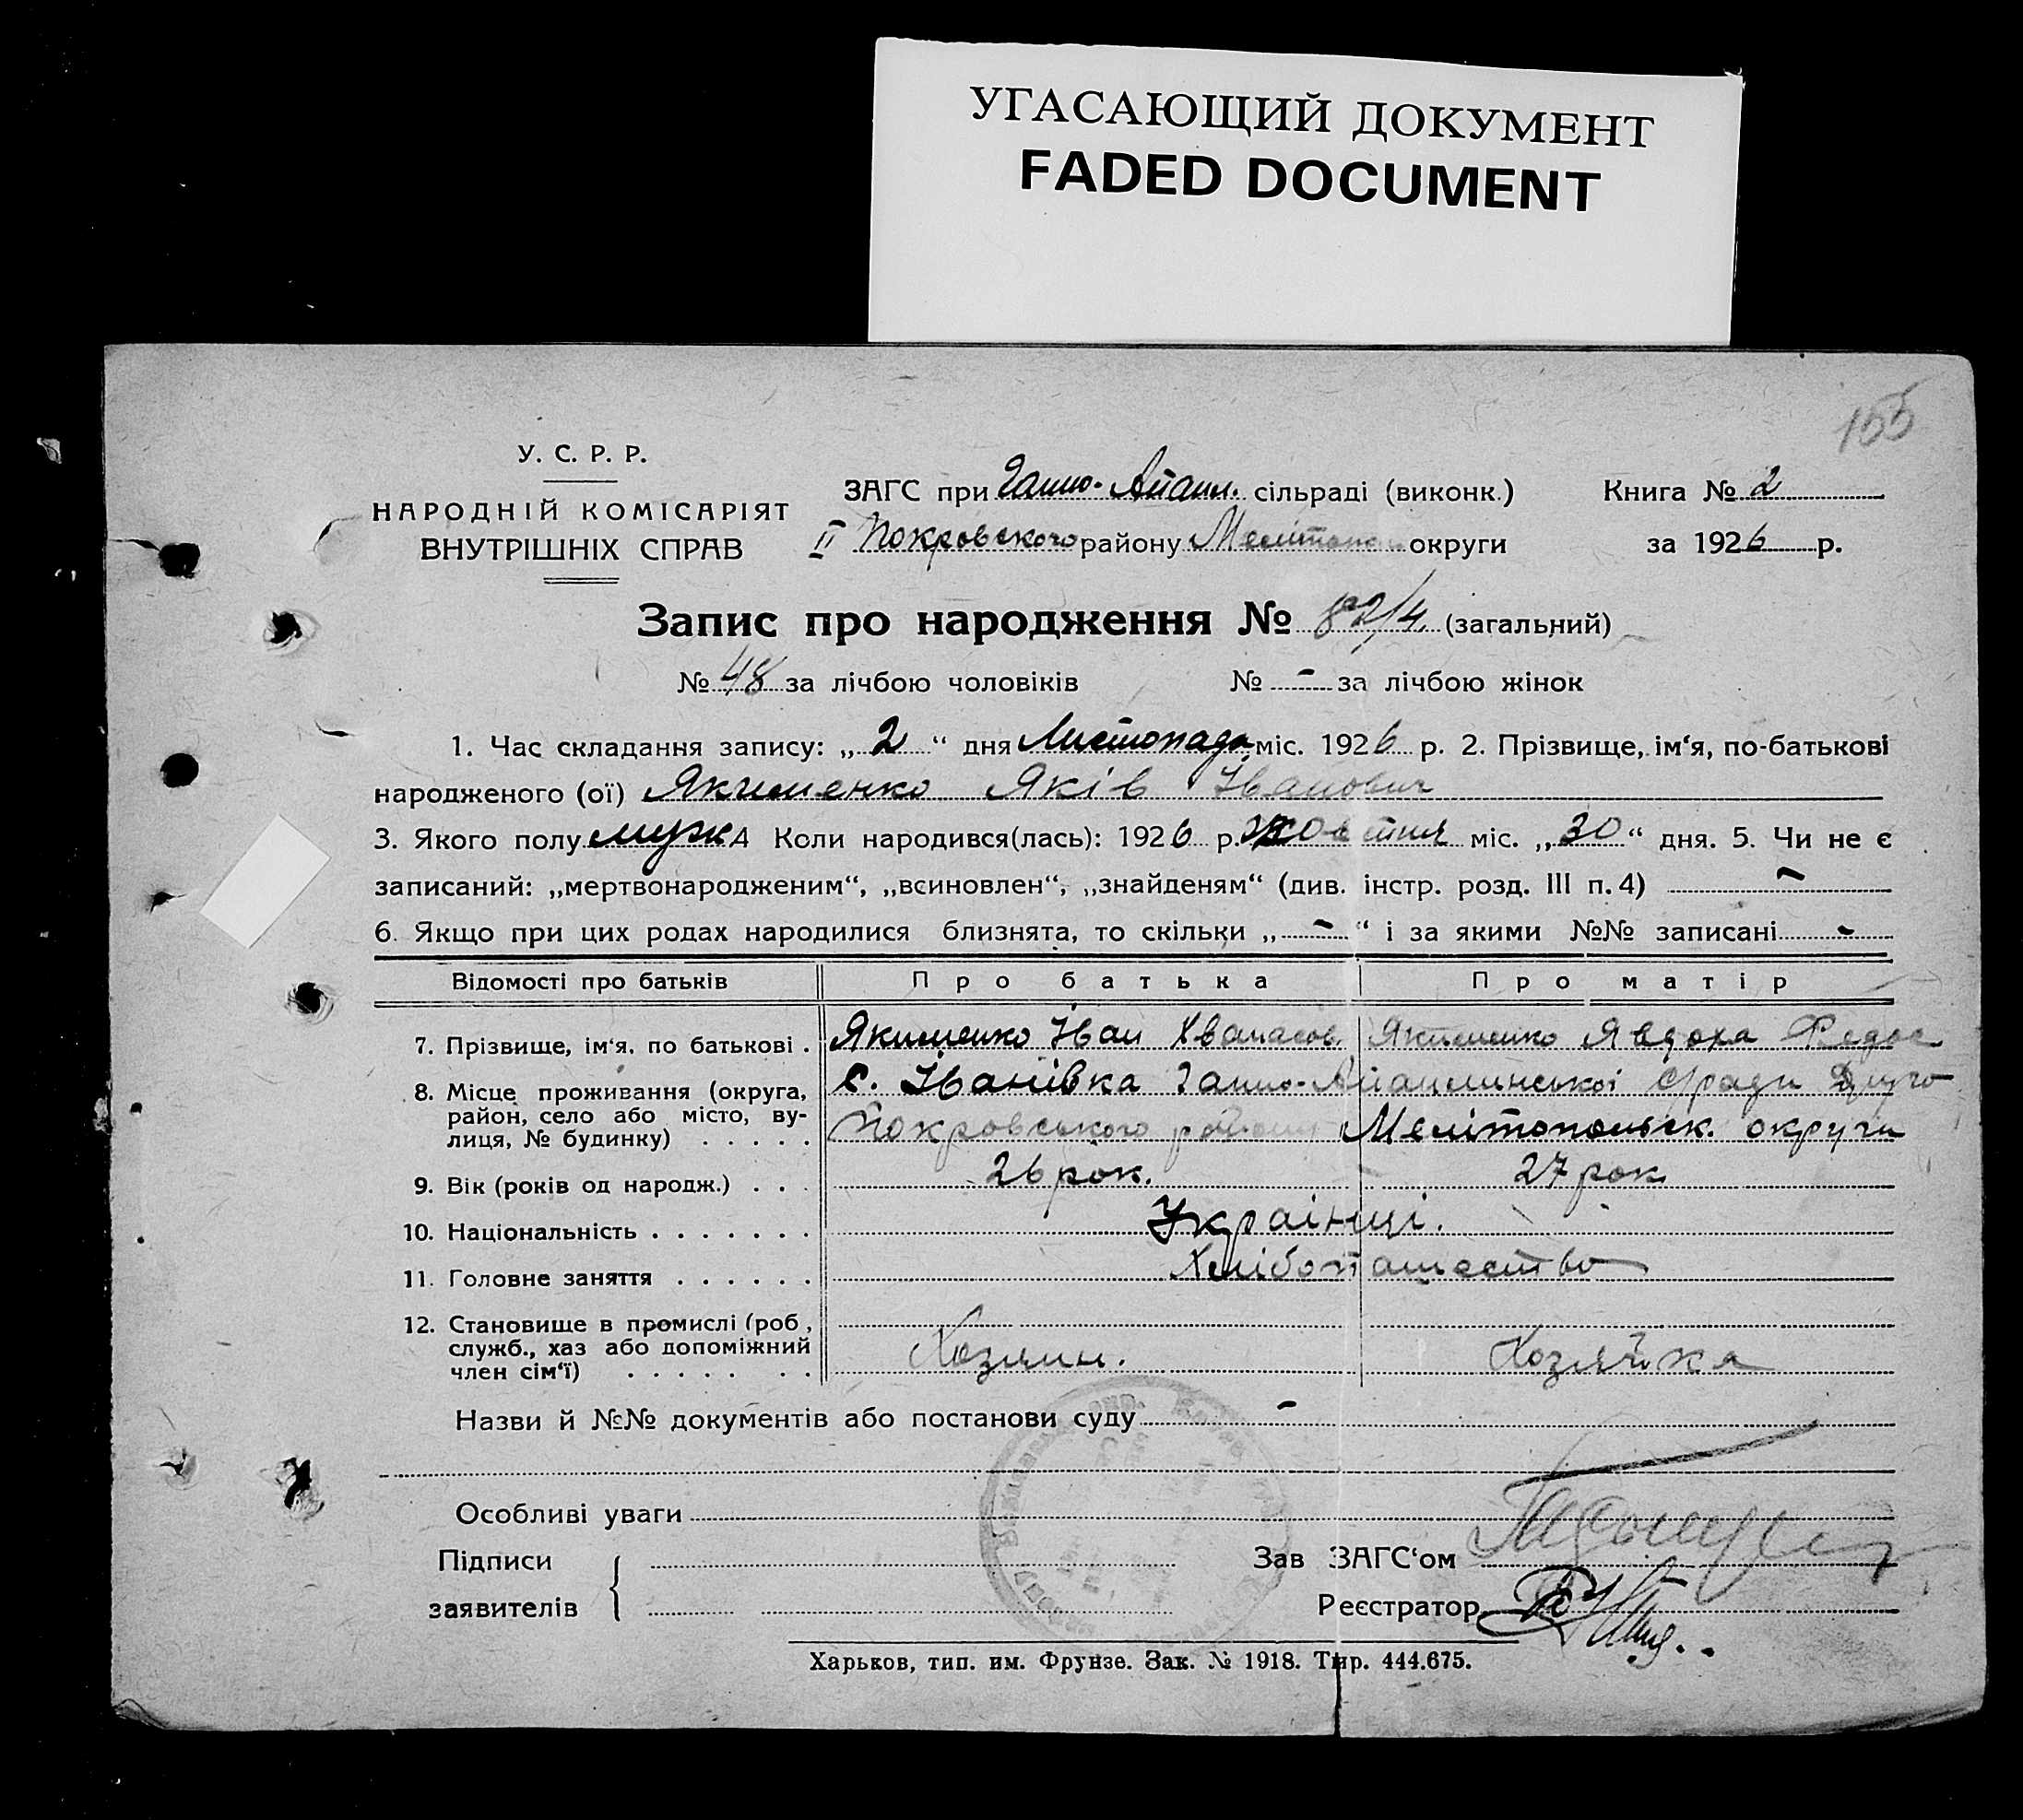 УГАСАЮЩИЙ ДОКУМЕНТ
FADED DOCUMENT
155
У. С. Р. Р.
НАРОДНІЙ КОМІСАРІЯТ
ВНУТРІШНІХ СПРАВ
ЗАГС при Ганно- сільраді (виконк.) Книга № 2
II Покровского району округи за 1926 р.
Запис про народження № 82/4 (загальний)
№ 48 за лічбою чоловіків № - за лічбою жінок
1. Час складання запису: „ 2 “ дня Листопада міс. 1926 р. 2. Прізвище, ім‘я, по-батькові
народженого (ої) Якименко Яків Іванович
3. Якого полу муж 4 Коли народився(лась): 1926 р. Жовтня міс. „30“ дня. 5. Чи не є
записаний: „мертвонародженим“, „всиновлен“, „знайденям“ (див. інстр. розд. III п. 4) -
6. Якщо при цих родах народилися близнята, то скільки „ - “ і за якими №№ записані -
Відомості про батьків Про батька Про матір
7. Прізвище, ім‘я, по батькові . Якименко Іван Якименко Явдоха Федос
8. Місце проживання (округа, с. Іванівка Ганно-
район, село або місто, ву- Покровського району Мелітопольск. округи
лиця, № будинку) . . . . .
9. Вік (років од народж.) . . . 26 рок. 27 рок
10. Національність . . . . . . . Українці.
11. Головне заняття . . . . . . Хлібопашество
12. Становище в промислі (роб,
служб., хаз або допоміжний Хозяин. Хозяйка
член сім‘ї) . . . . . . .
Назви й №№ документів або постанови суду -
Особливі уваги
Підписи Зав ЗАГС‘ом
заявителів Реєстратор
Харьков, тип. им. Фрунзе. Зак. № 1918. Тир. 444.675.